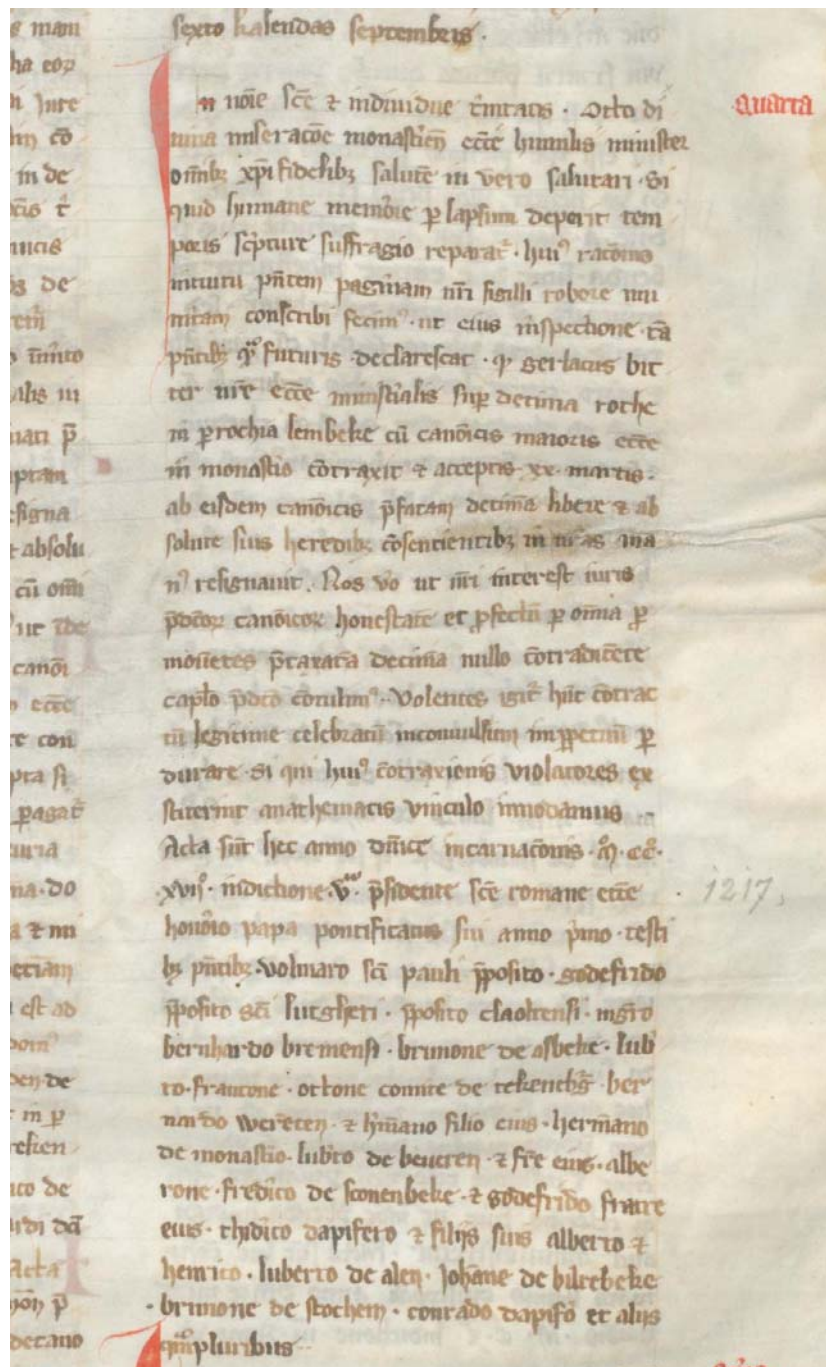 sexto kalendas septembris.
In noie scē ⁊ individue t̄nitatis. Otto di
uina miseracōe monastien̄ eccē humilis minister
om̄ibꝫ xp̄i fidelibꝫ salutē in vero salutari. Si
quid humane memōie ꝑ lapsum deperit tem
poris sc̄pture suffragio reparat̄. huiꝰ racōnis
intuitu pn̄tem paginam nr̄i sigilli robore mu
nitam conscribi fecimꝰ. ut eius inspectione tā
pn̄tibꝫ qͣ futuris declarescat. ꝙ Gerlacus bit
ter nr̄e eccē minist̄ialis suꝑ decima rothe
in ꝑrochia lembeke cū canōicis maioris eccē
in monast̄io cōtraxit ⁊ acceptis. xx. marcis.
ab eisdem canōicis p̄fatam decimā libere ⁊ ab
solute suis heredibꝫ cōsentientibꝫ in nr̄as ma
nꝰ resignauit. Nos v̊o ut nr̄i interest iuris
p̄dc̄oꝝ canōicoꝝ honestatē et ꝓfectū ꝑ omnia ꝓ
mouētes p̄taxatā decimā nullo cōtradicēte
capl̄o p̄dc̄o cōtulimꝰ. Volentes igit̄ hūc cōtrac
tū legitime celebratū inconuulsum imꝑpetuū ꝑ
durare. Si qui huiꝰ cōtraxionis violatores ex
stiterint anathematis vinculo innodamus
Acta sūt hec anno dn̄ice incarnacōnis. M̊. cc̊.
xvii̊. indictione. v͛. p̄sidente scē romane eccē
honōio papa pontificatus sui anno p̄mo. testi
bꝫ pn̄tibꝫ. Volmaro sc̄i pauli p̄posito. Godefrido
p̄posito sc̄i lutgheri. p̄posito claoltensi. mgr̄o
bernhardo bremensi. brunone de asbeke. lub̄
to. francone. ottone comite de tekenebg̃. ber
nardo Wereten. ⁊ h̓mano filio eius. herm̄ano
de monast̄io. lub̓to de beueren. ⁊ fr̄e eius. albe
rone. fred̓ico de sconenbeke. ⁊ godefrido fratre
eius. thid̓ico dapifero ⁊ filiis suis alberto ⁊
henrico. luberto de alen. Johāne de bilrebeke
brunone de stochem. conrado dapifo̓ et aliis
qͣm pluribus
quarta
1217.